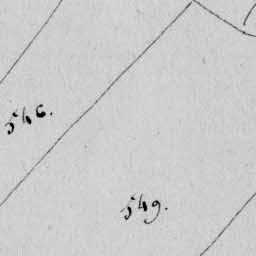 546.
549.